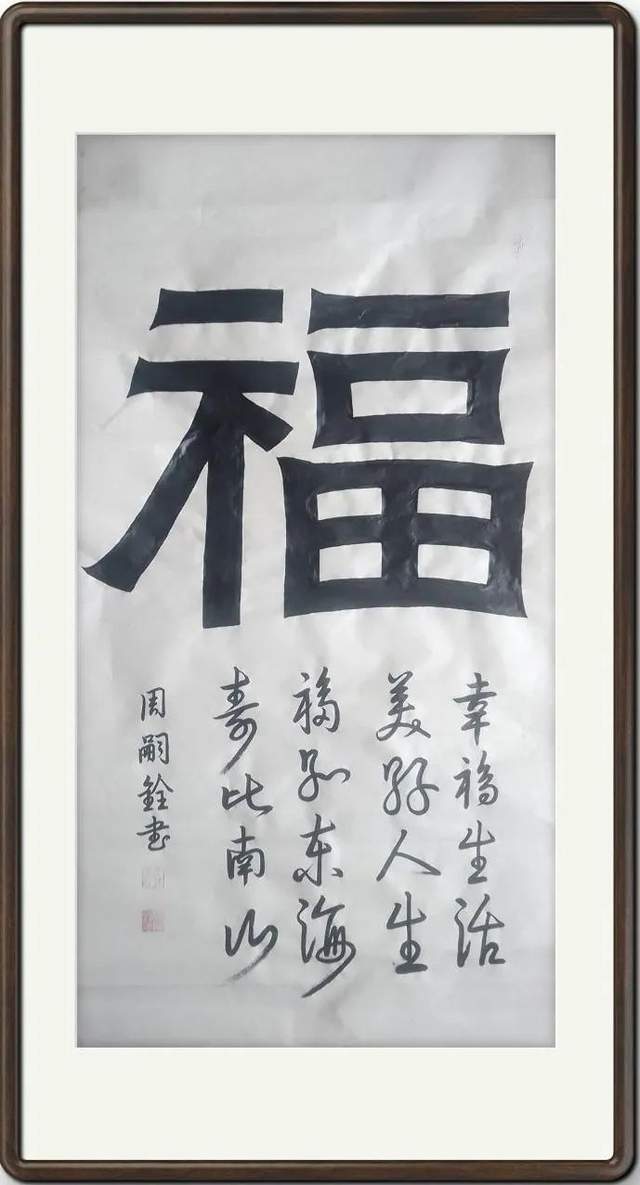 福
幸福生活
美好人生
福如东海
寿比南山
周嗣銓书